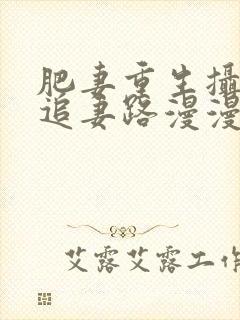 肥妻重生攝
追妻路漫漫
艾露艾露工作